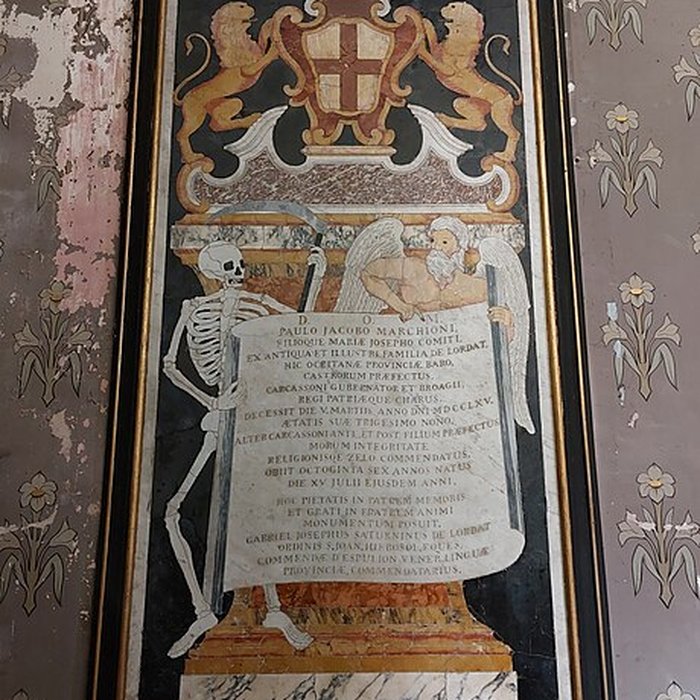 D. O. M.
PAULO JACOBO MARCHIONI,
FILIOQUE MARIÆ JOSEPHO COMITI,
EX ANTIQUA ET ILLUSTRI FAMILIA DE LORDAT,
HIC OCCITANÆ PROVINCIÆ BARO,
CASTRORUM PRÆFECTUS,
CARCASSONI GUBERNATOR ET BROAGII,
REGI PATRIÆQUE CHARUS.
DECESSIT DIE V. MARTIIS ANNO DNI MDCCLXV.
ÆTATIS SUÆ TRIGESIMO NONO,
ALTER CARCASSONI ANTE, ET POST FILIUM PRÆFECTUS
MORUM INTEGRITATE
RELIGIONISQUE ZELO COMMENDATUS.
OBIIT OCTOGINTA SEX ANNOS NATUS
DIE XV JULII EJUSDEM ANNI.
HOC PIETATIS IN PATREM MEMORIS
ET GRATI IN FRATREM ANIMI
MONUMENTUM POSUIT,
GABRIEL JOSEPHUS SATURNINUS DE LORDAT
ORDINIS S. JOAN, HIEROSOL, EQUES,
COMMENDÆ D'ESPULION VENER, LINGUÆ
PROVINCIÆ, COMMENDATARIUS.